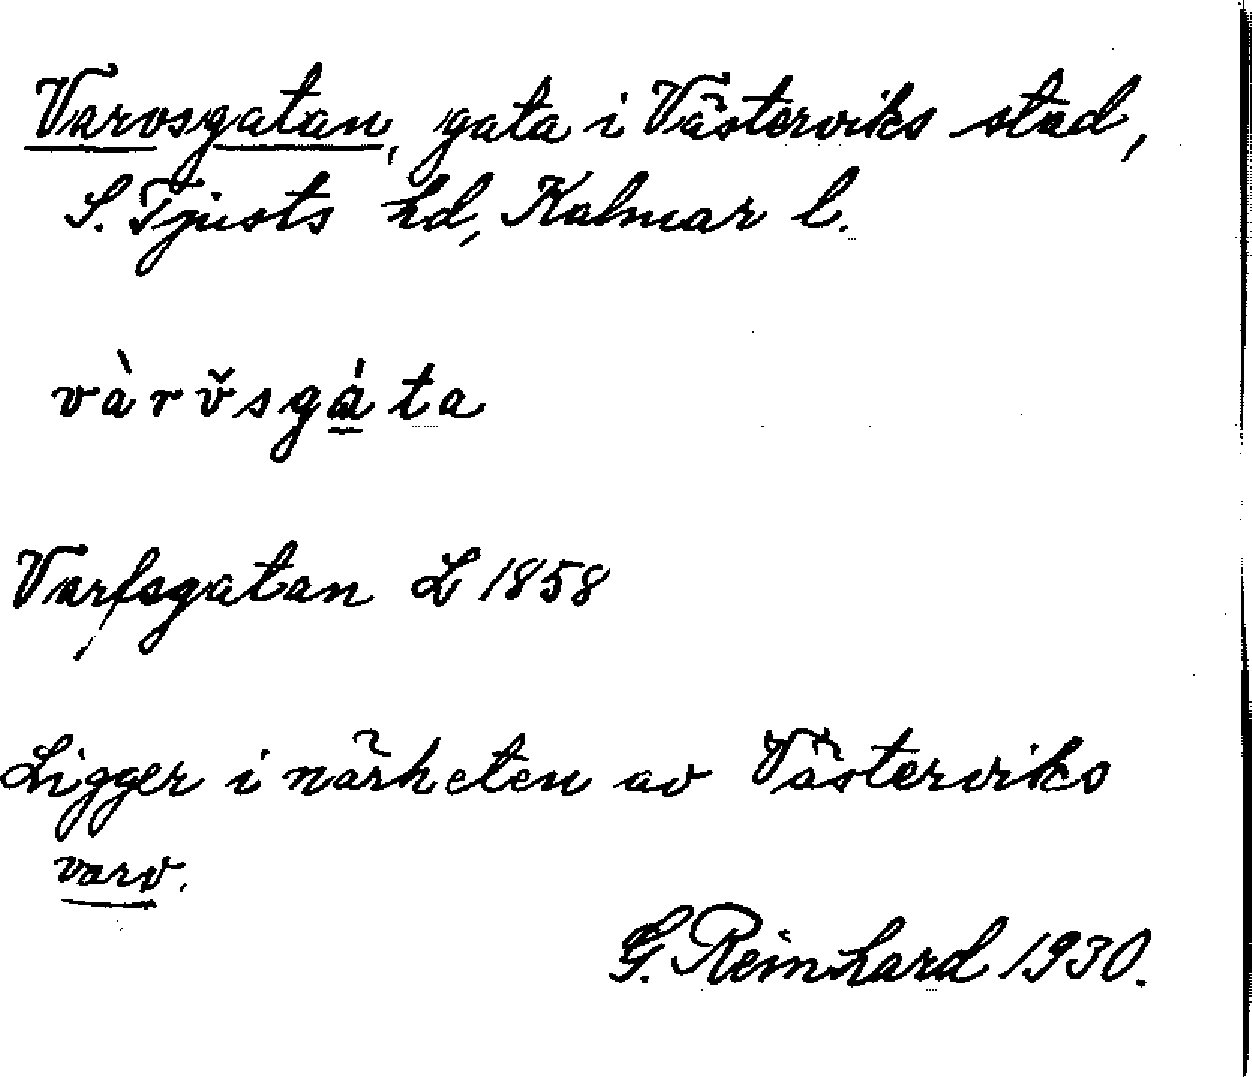 Varvsgatan, gata i Västerviks stad,
S. Tjusts hd, Kalmar l.
vàrv̌sgáta
Varfsgatan L 1858
Ligger i närheten av Västerviks
varv.
G. Reinhard 1930.